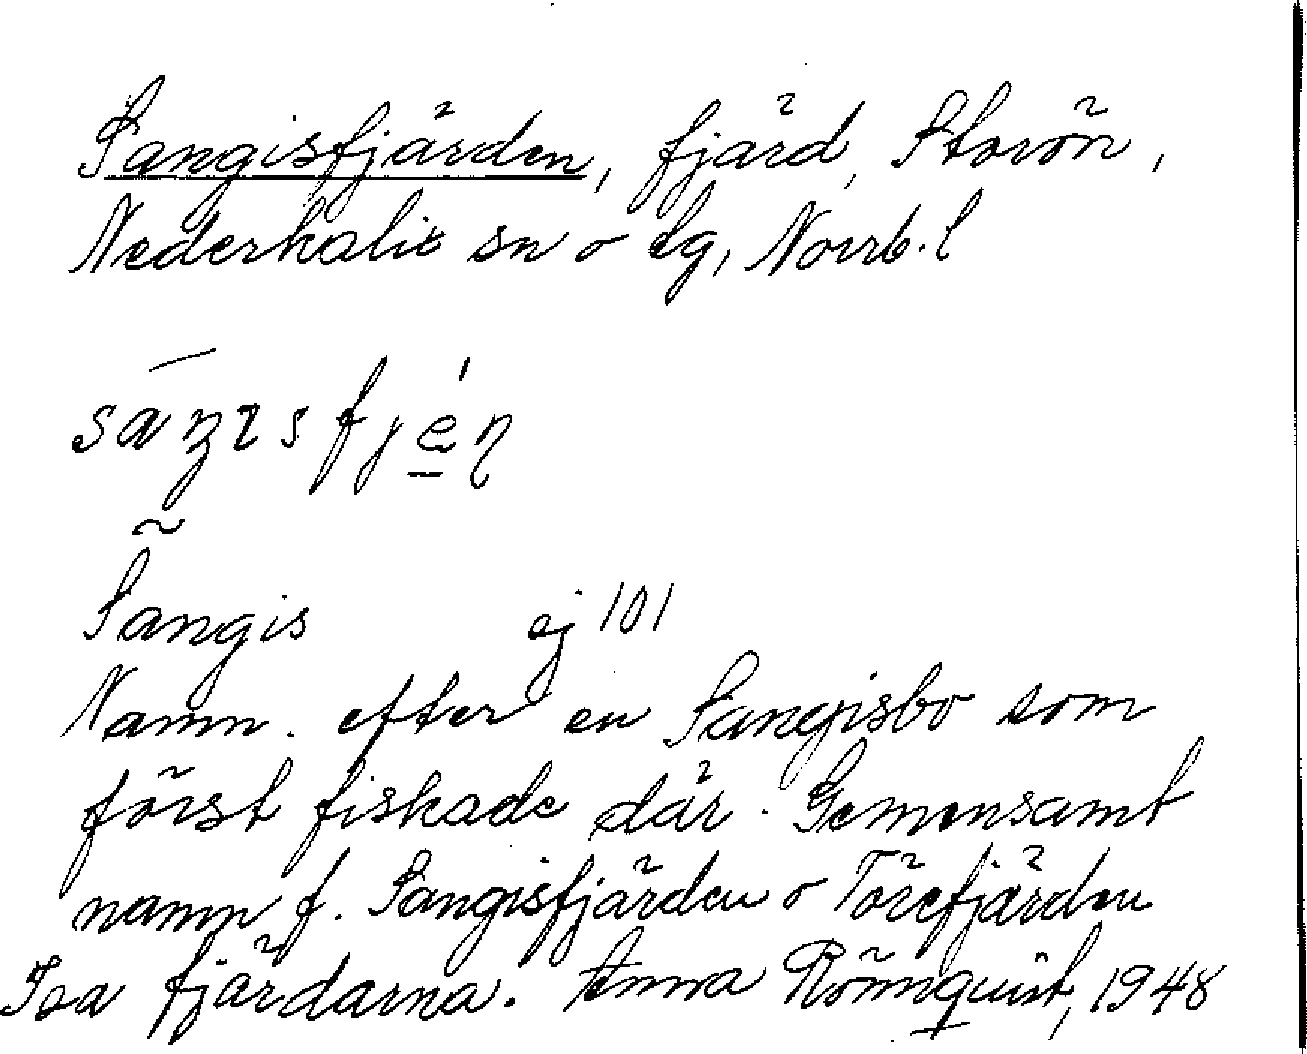 Sangisfjärden, fjärd, Storön,
Nederkalix sn o tg, Norrb. l
Sangis ej 101
Namn. efter en Sangisbo som
först fiskade där. Gemensamt
namn f. Sangisfjärden o Törefjärden
fjärdarna. Anna Rönnquist, 1948